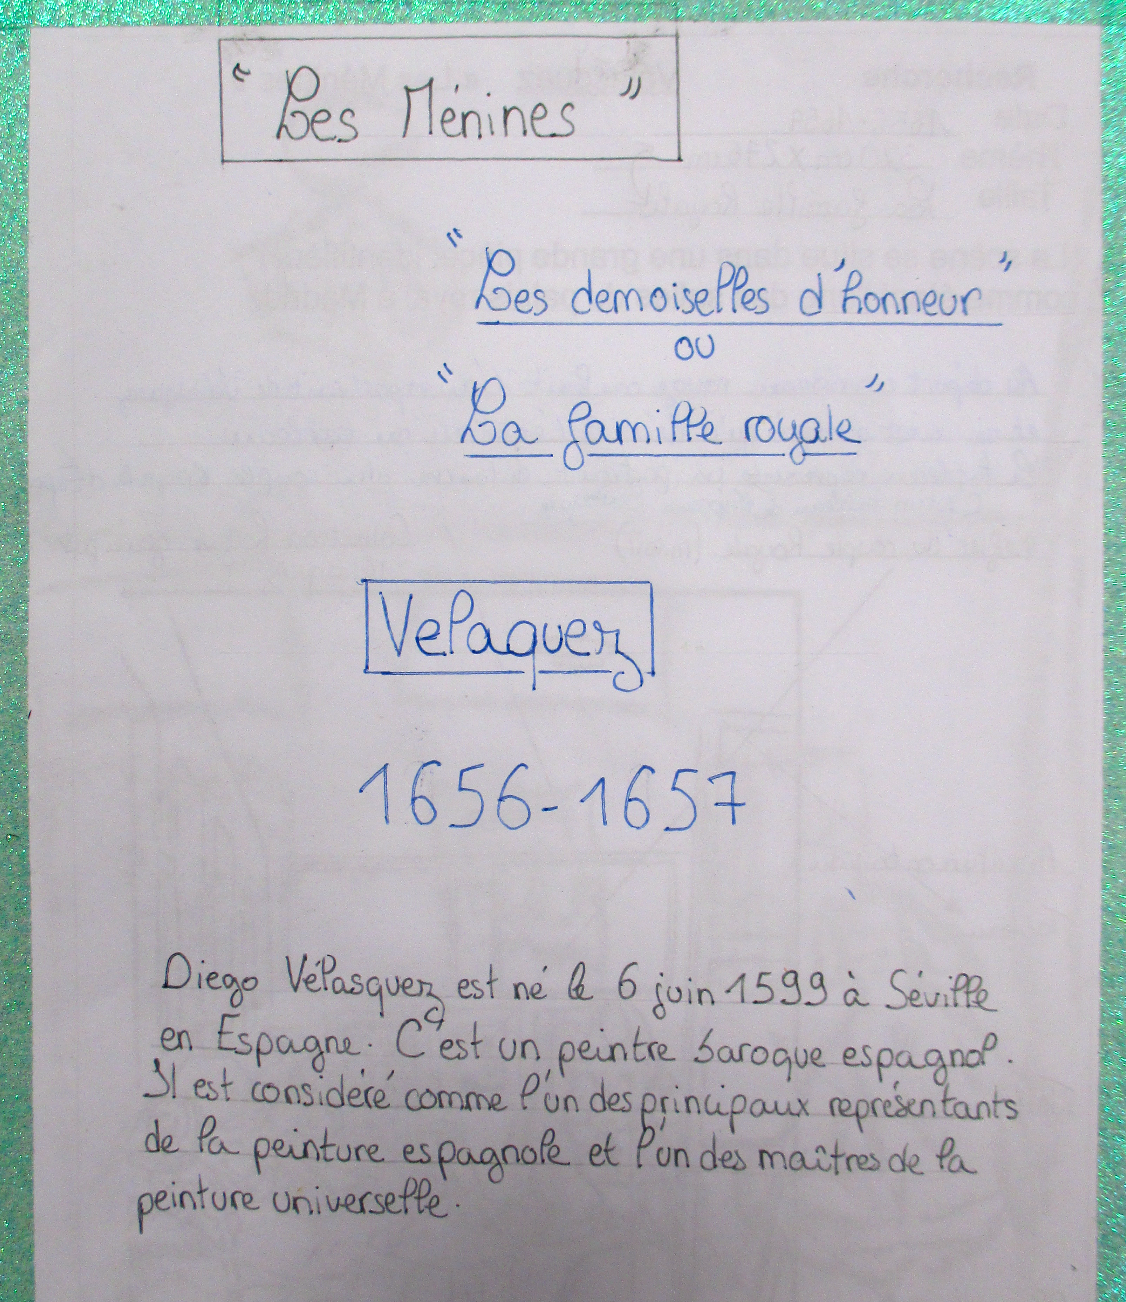 "Les Ménines"
"Les demoiselles d'honneur"
ou
"La famille royale"
Velaquez
1656-1657
Diego Vélasquez est né le 6 juin 1599 à Séville
en Espagne. C'est un peintre baroque espagnol.
Il est considéré comme l'un des principaux représentants
de la peinture espagnole et l'un des maîtres de la
peinture universelle.